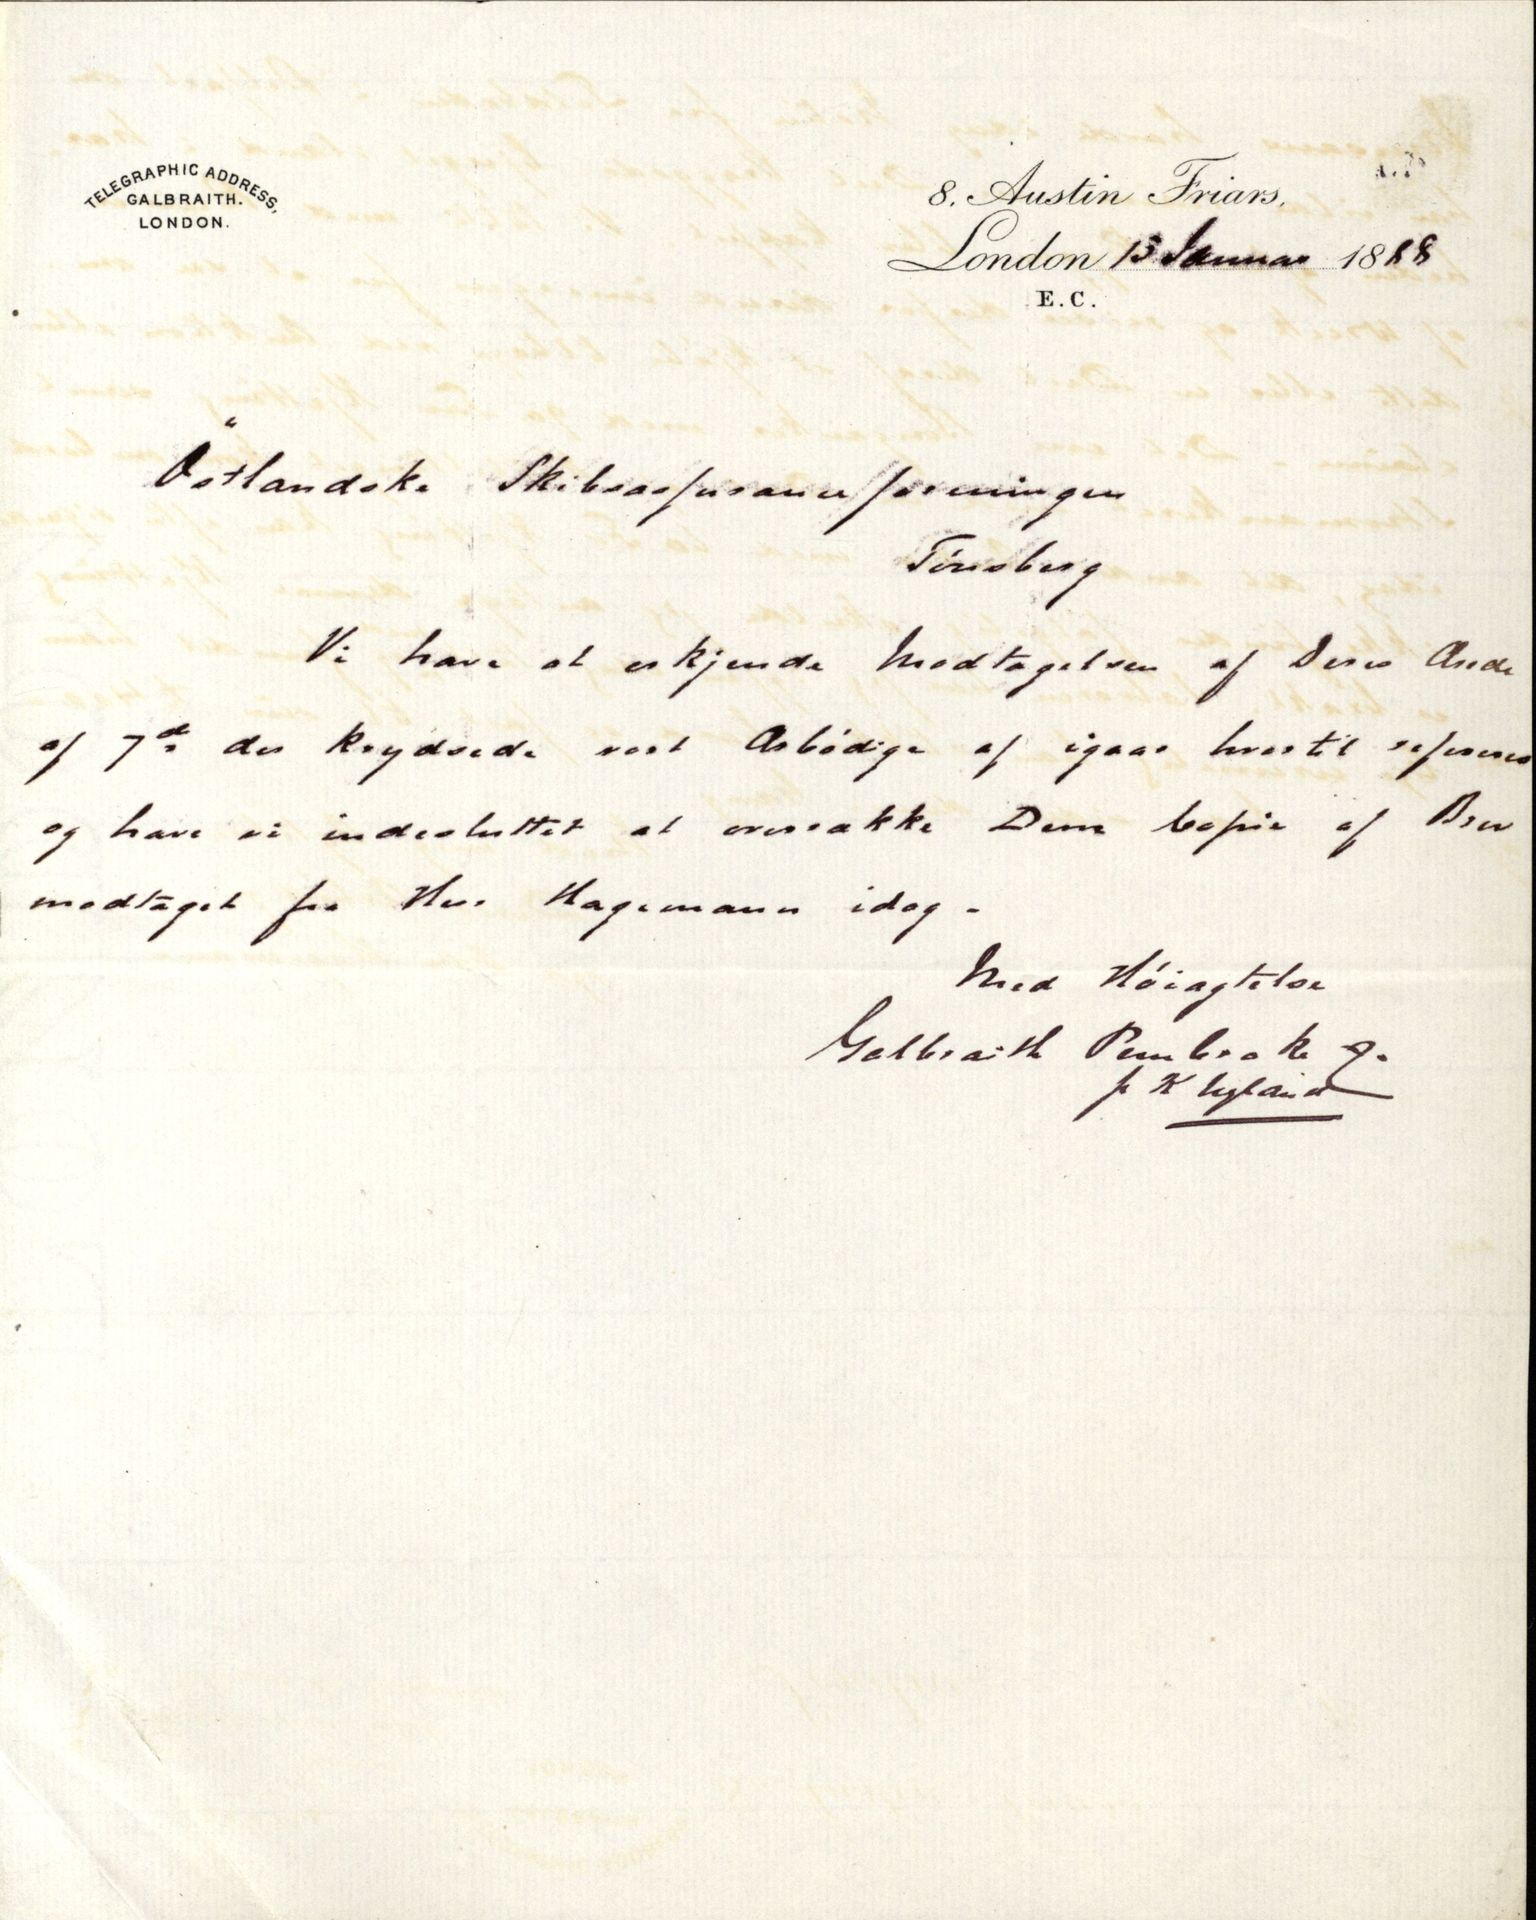 TELEGRAPHIC ADDRESS,
GALBRAITH.
LONDON.
8. Austin Friars.
London 13 Januar 1888
E.C.
Östlandske Skibsassuranceforeningen
Tönsberg
Vi have at erkjende Modtagelsen af Deres Ærede
af 7de der krydsede vort Ærbödige af igaar hvortil refereres
og have vi indesluttet at overrække Dem Copie af Brev
modtaget fra Herr Hagemann idag -
Med Höiagtelse
Galbraith Pembroke
p K